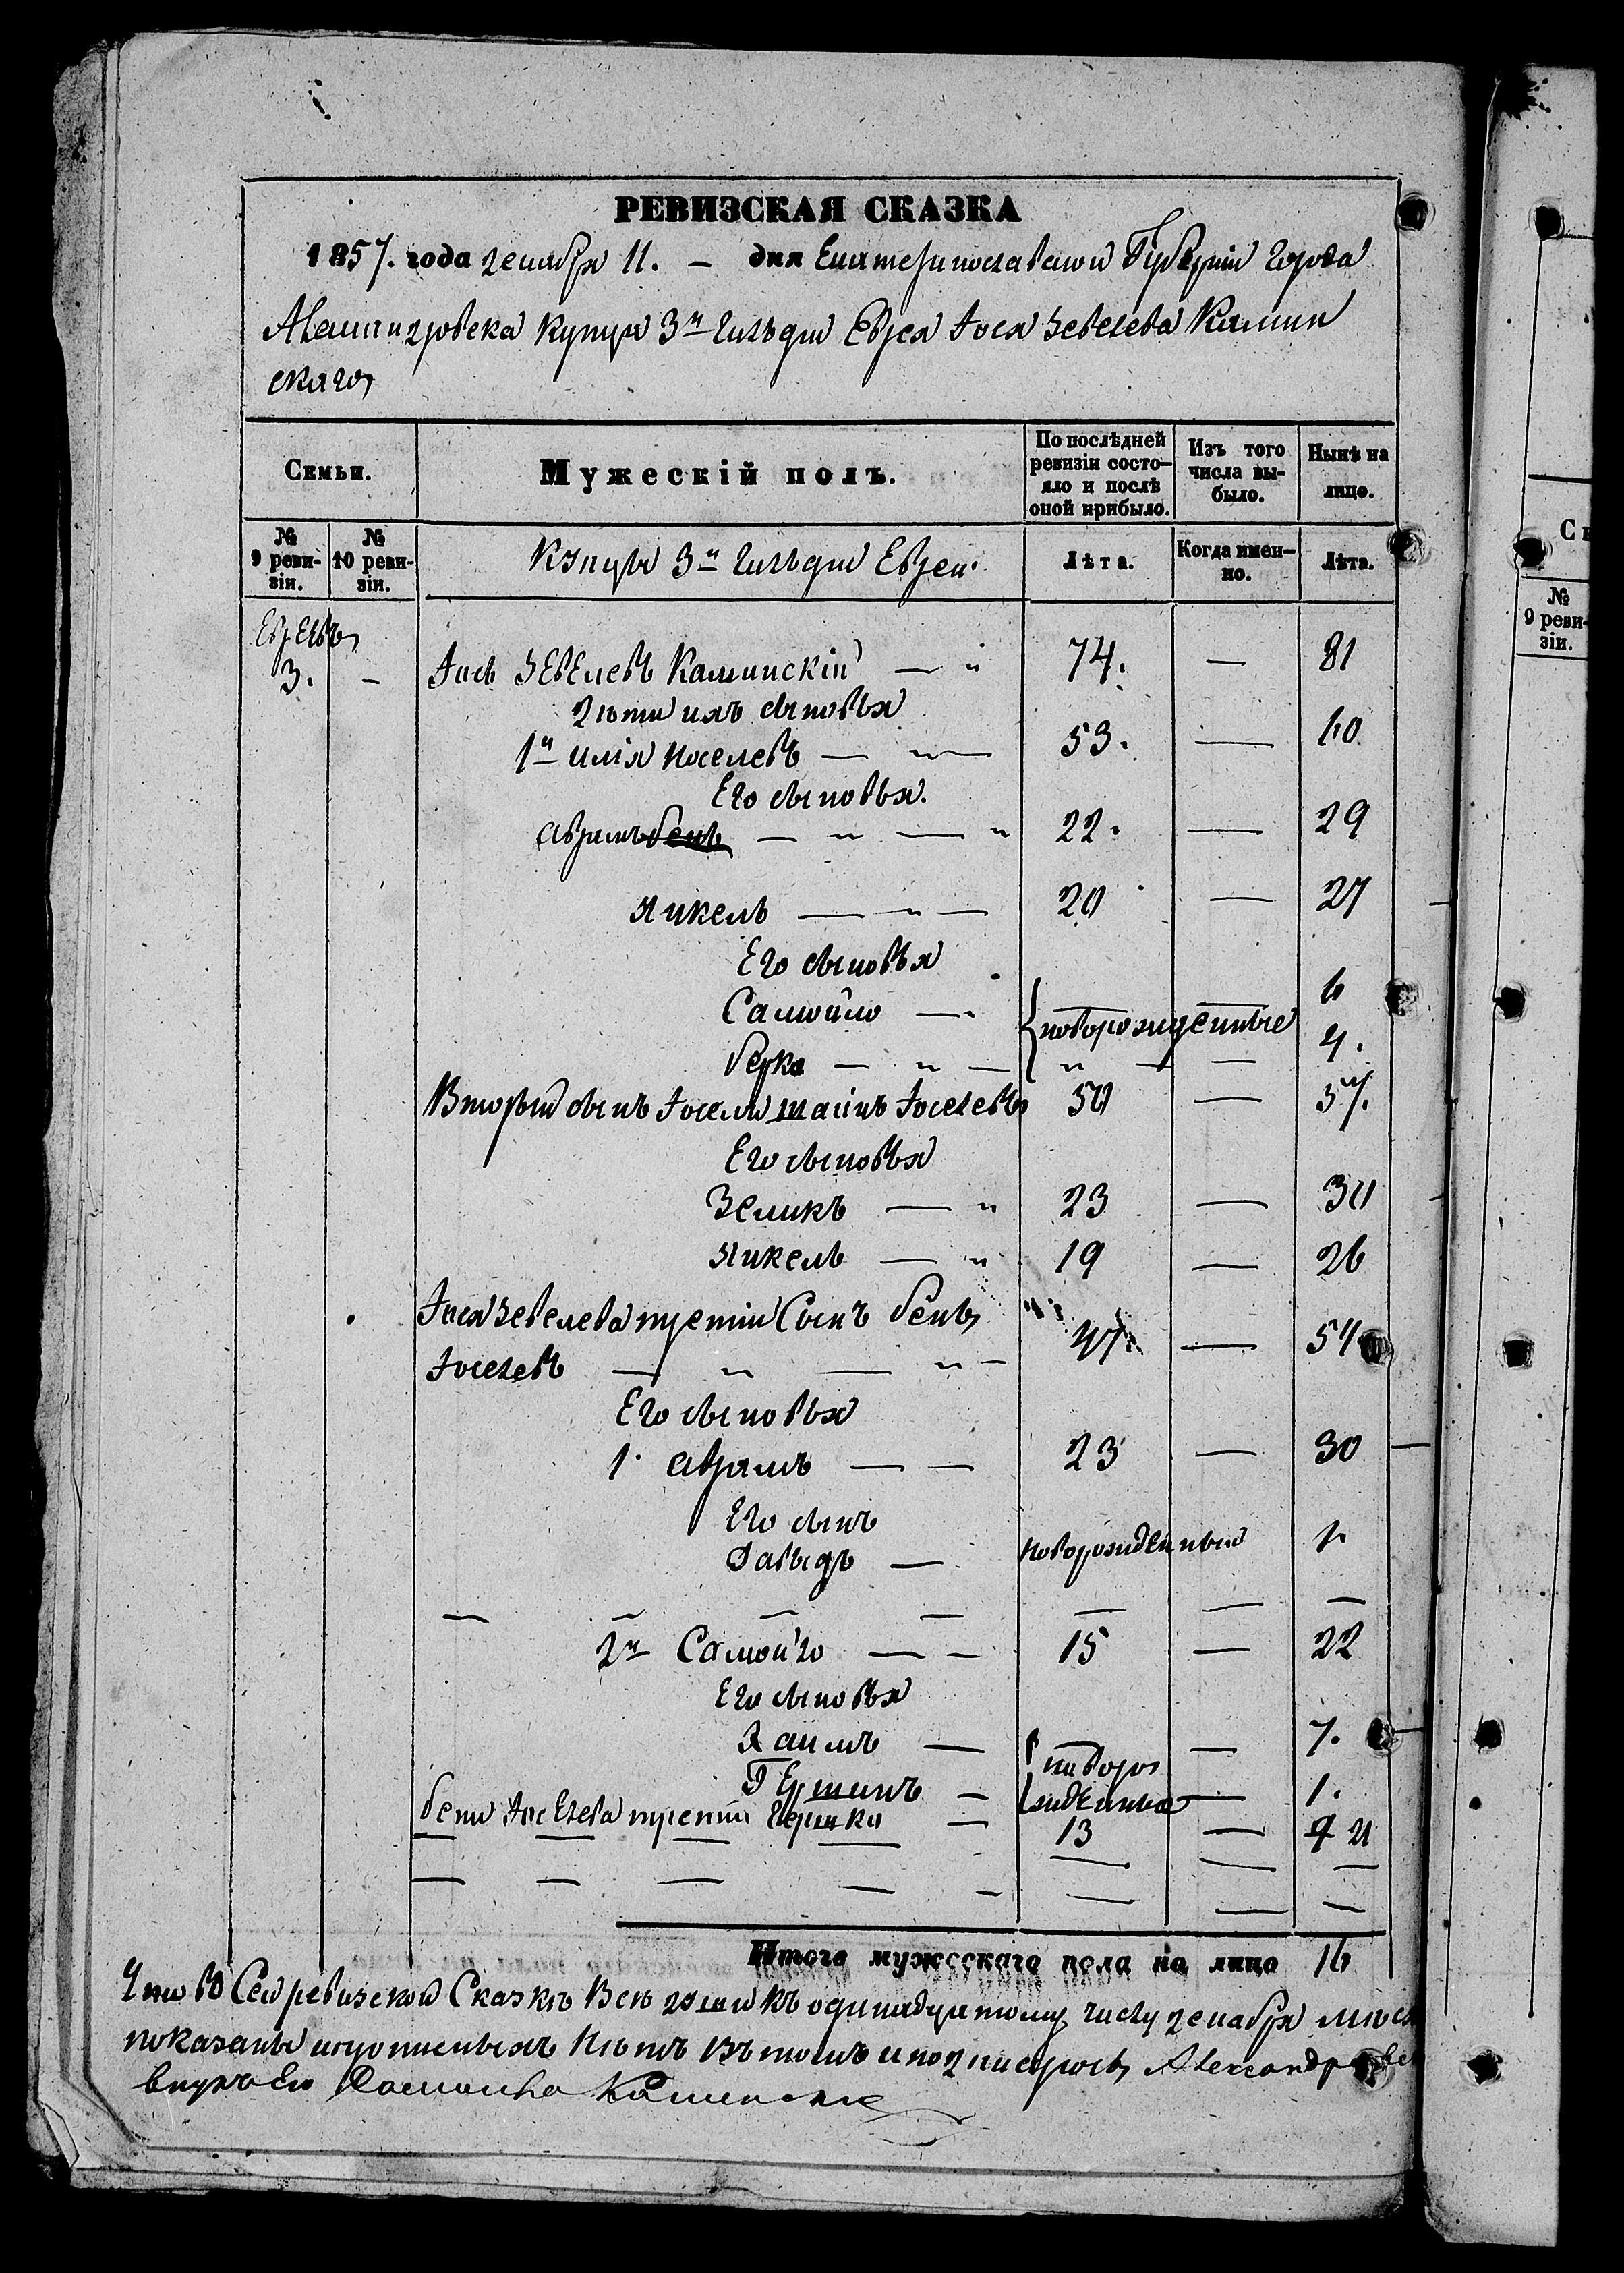 РЕВИЗСКАЯ СКАЗКА
1857. года декабря 11. — дня Екатеринославской Губерніи города
Александровска купца 3й гильдіи Еврея Іося Зевелева Камин
скаго
Семьи.
Мужескій полъ.
По послѣдней ревизіи состо-яло и послѣ оной прибыло.
Изъ того числа вы-было.
Нынѣ на лицо.
№ 9 реви-зіи.
№ 10 реви-зіи.
Купцы 3й гильдіи Евреи
Лѣта.
Когда имен-но.
Лѣта.
Евреевъ
3. — Іось Зевелевъ Каминскій — " 74. — 81
Дѣти ихъ сыновья
1й Илія Иоселевъ — " — 53. — 60
Его сыновья.
Аврамъ бень — " — " 22. — 29
Янкель — " — 20 — 27
Его сыновья
Самойло — новорожденные — 6
Берко — " — " — — 4.
Вторый сынъ Іоселя Шаинъ Іоселевъ 50 — 57.
Его сыновья
Зеликъ — " 23 — 30
Янкель — " 19 — 26
Іося Зевелева третій Сынъ бень
Іоселевъ — " — " — 47. — 54
Его сыновья
1. Аврамъ — — 23 — 30
Его сынъ
Давыдъ — новорожденный 1.
— — — — — — —
2й Самойло — — 15 — 22
Его сыновья
Хаимъ — новоро — 7.
Гершинъ — жденные — 1.
беня Іоселева третій Гершко — 13 — 21
Итого мужескаго пола на лицо 16
Что во Сей ревизской Сказкѣ Всѣ души къ одинадцатому числу декабря
показаны и прописныхъ Нѣтъ въ томъ и подписуюсь
внукъ его